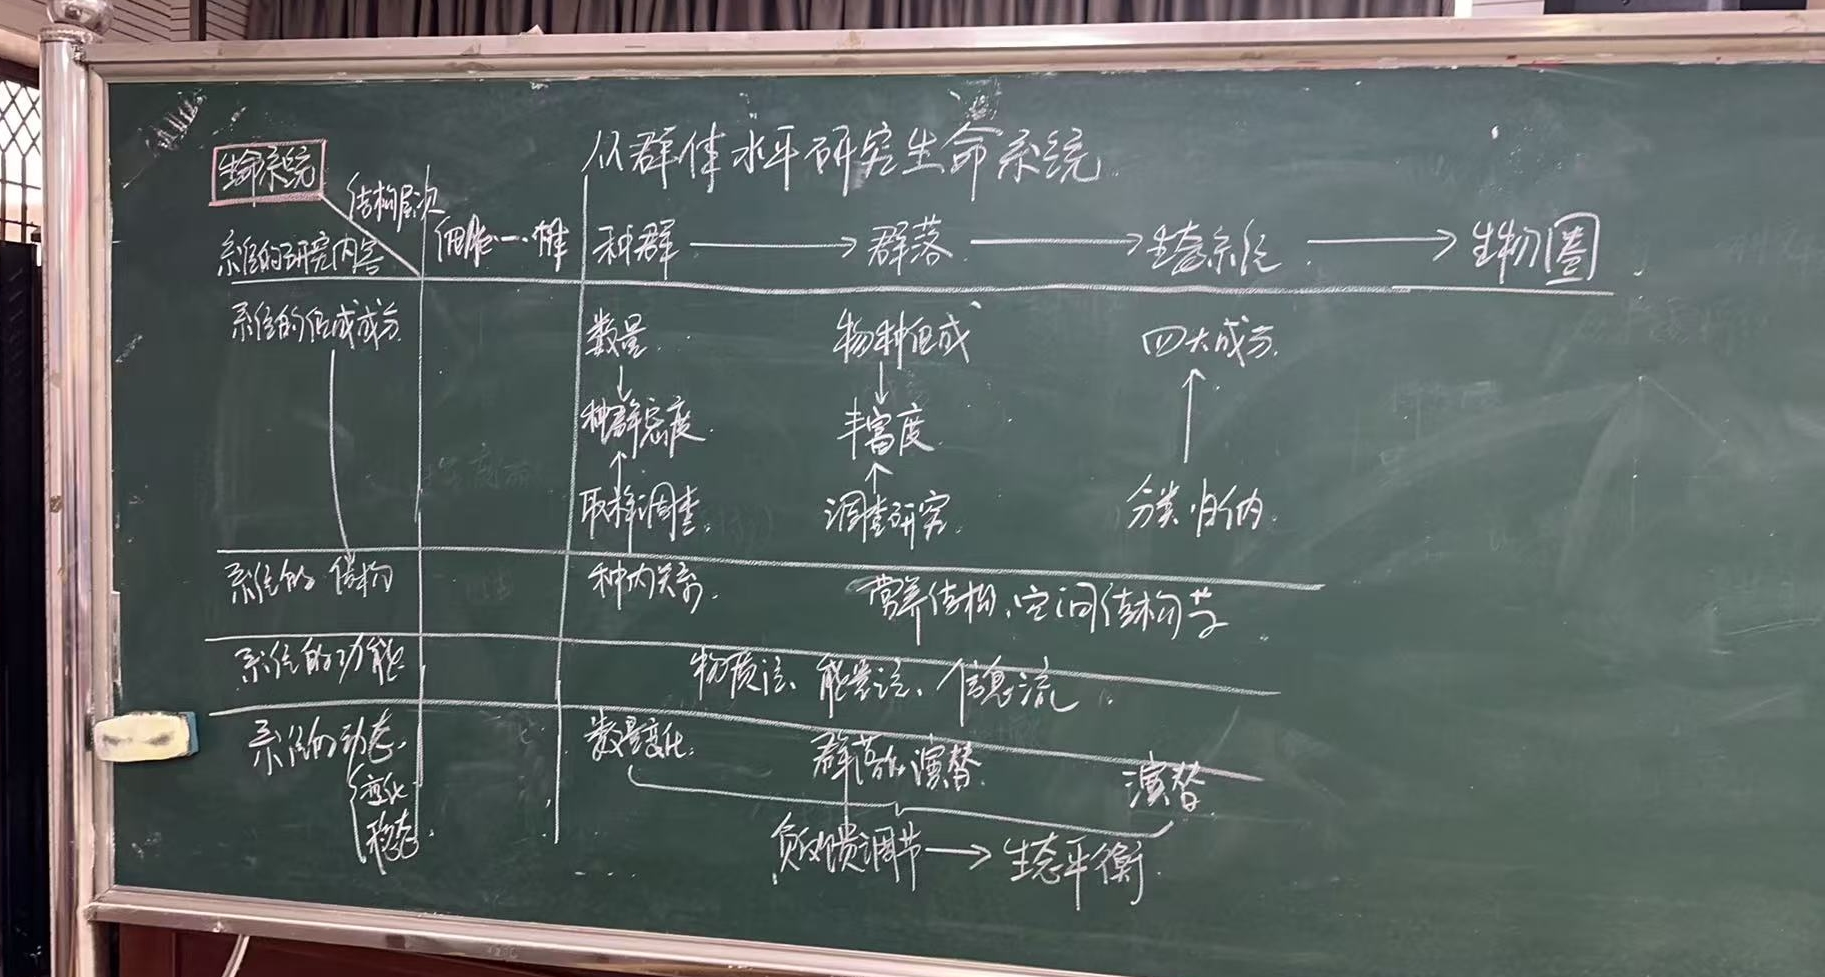 从群体水平研究生命系统
生命系统
结构层次
系统的研究内容
细胞…个体 种群 → 群落 → 生态系统 → 生物圈
系统的组成成分 数量 物种组成 四大成分
种群密度 丰富度
取样调查 调查研究 分类、归纳
系统的结构 种内关系 营养结构、空间结构等
系统的功能 物质流、能量流、信息流
系统的动态 数量变化 群落的演替 演替
变化
稳态
负反馈调节 → 生态平衡